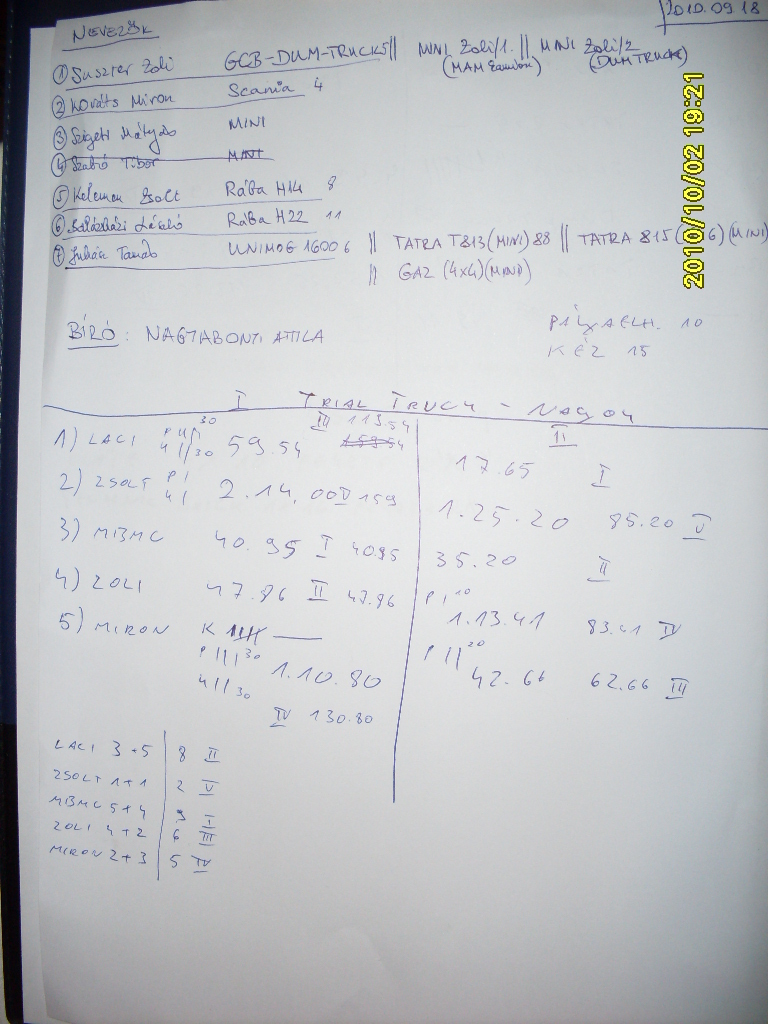 2010.09.18
NEVEZŐK
① Suszter Zoli GCB-DUM-TRUCKS || MINI Zoli/1. || MINI Zoli/2
(MAM Kamion) (DUMTRUCK)
② Kováts Miron Scania 4
③ Szigeti Mátyás MINI
④ Szabó Tibor MINI
⑤ Kelemen Zsolt Rába H14 8
⑥ László Rába H22 11
⑦ Juhász Tamás UNIMOG 1600 6 || TATRA T813 (MINI) 88 || TATRA 815 (6) (MINI)
|| GAZ (4x4) (MINI)
2010/10/02 19:21
BÍRÓ: NAGTABONTI ATTILA
PÁLYAELH. 10
KÉZ 15
I TRIAL TRUCK - NAGYOK
1) LACI P III 30 4 II/30 59.54 III 119.54 159.54
2) ZSOLT P I 4 I 2.14,00 V 159
3) MBMC 40.95 I 40.95
4) ZOLI 47.86 II 47.86
5) MIRON K IIII
P III 30 1.10.80
4 II/30
IV 130.80
II
17.65 I
1.25.20 85.20 V
35.20 II
P I 10
1.13.41 83.41 IV
P II 20
42.66 62.66 III
LACI 3+5 8 II
ZSOLT 1+1 2 V
MBMC 5+4 9 I
ZOLI 4+2 6 III
MIRON 2+3 5 IV